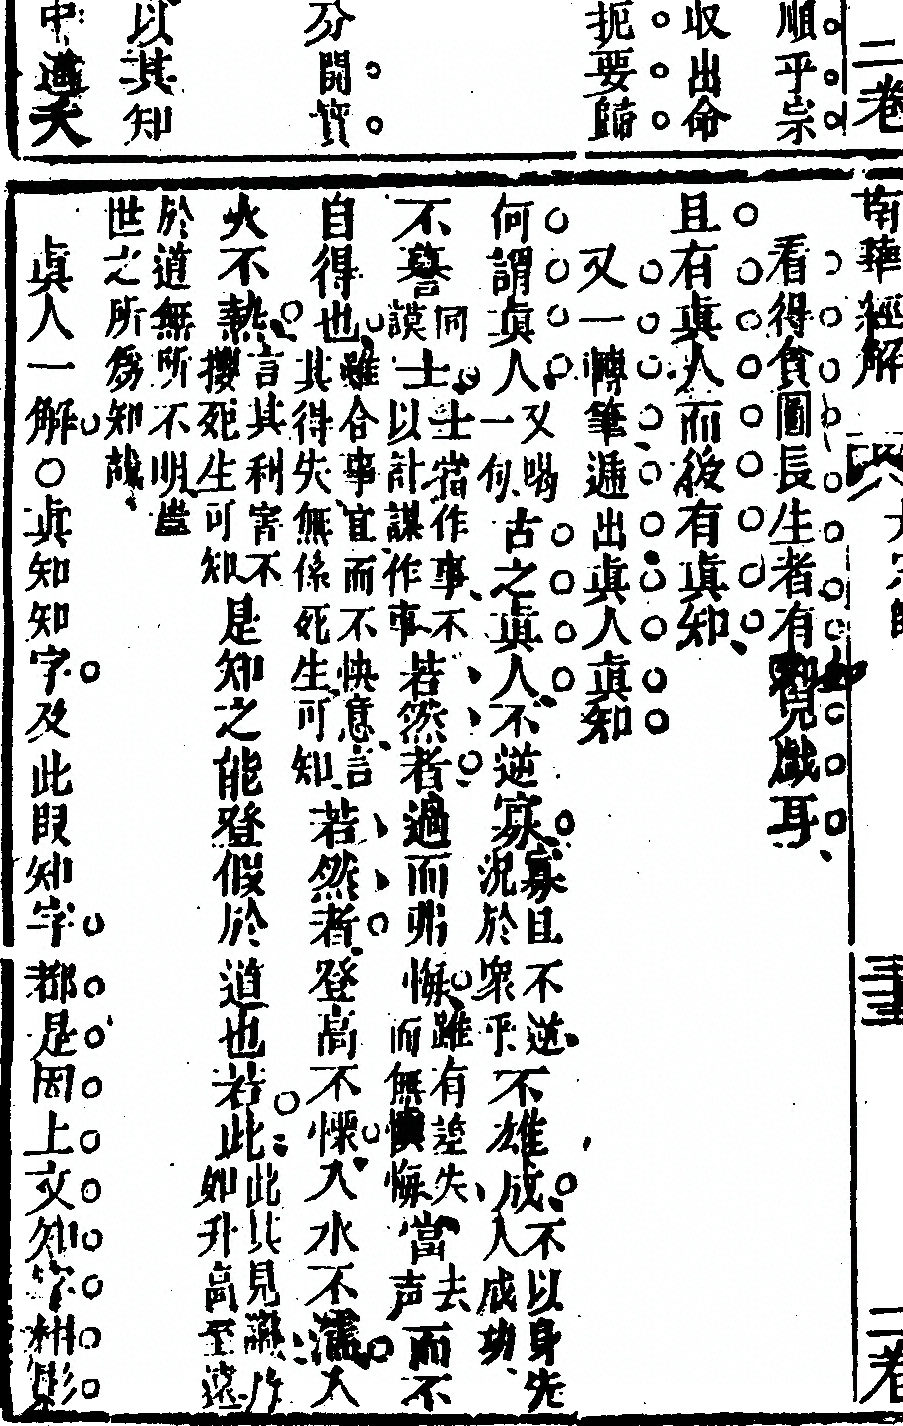 順乎宗
收出命
扼要歸
分開寶
以其知
中道天
二卷
南華經解
三
二卷
看得貪圖長生者有如見戲耳
且有眞人而後有眞知
又一轉筆遞出眞人眞知
何謂眞人又喝一句古之眞人不逆寡寡且不逆況於衆乎不雄成不以身先人成功
不謩同謨士士宿作事不以計謀作事若然者過而弗悔雖有差失而無懊悔當去声而不
自得也雖合事宜而不快意言其得失無係死生可知若然者登高不慄入水不濡入
火不熱言其利害不攖死生可知是知之能登假於道也若此此其見識如升高至遠
於道無所不明豈
世之所爲知哉
眞人一解○眞知知字及此段知字都是因上文知字相形